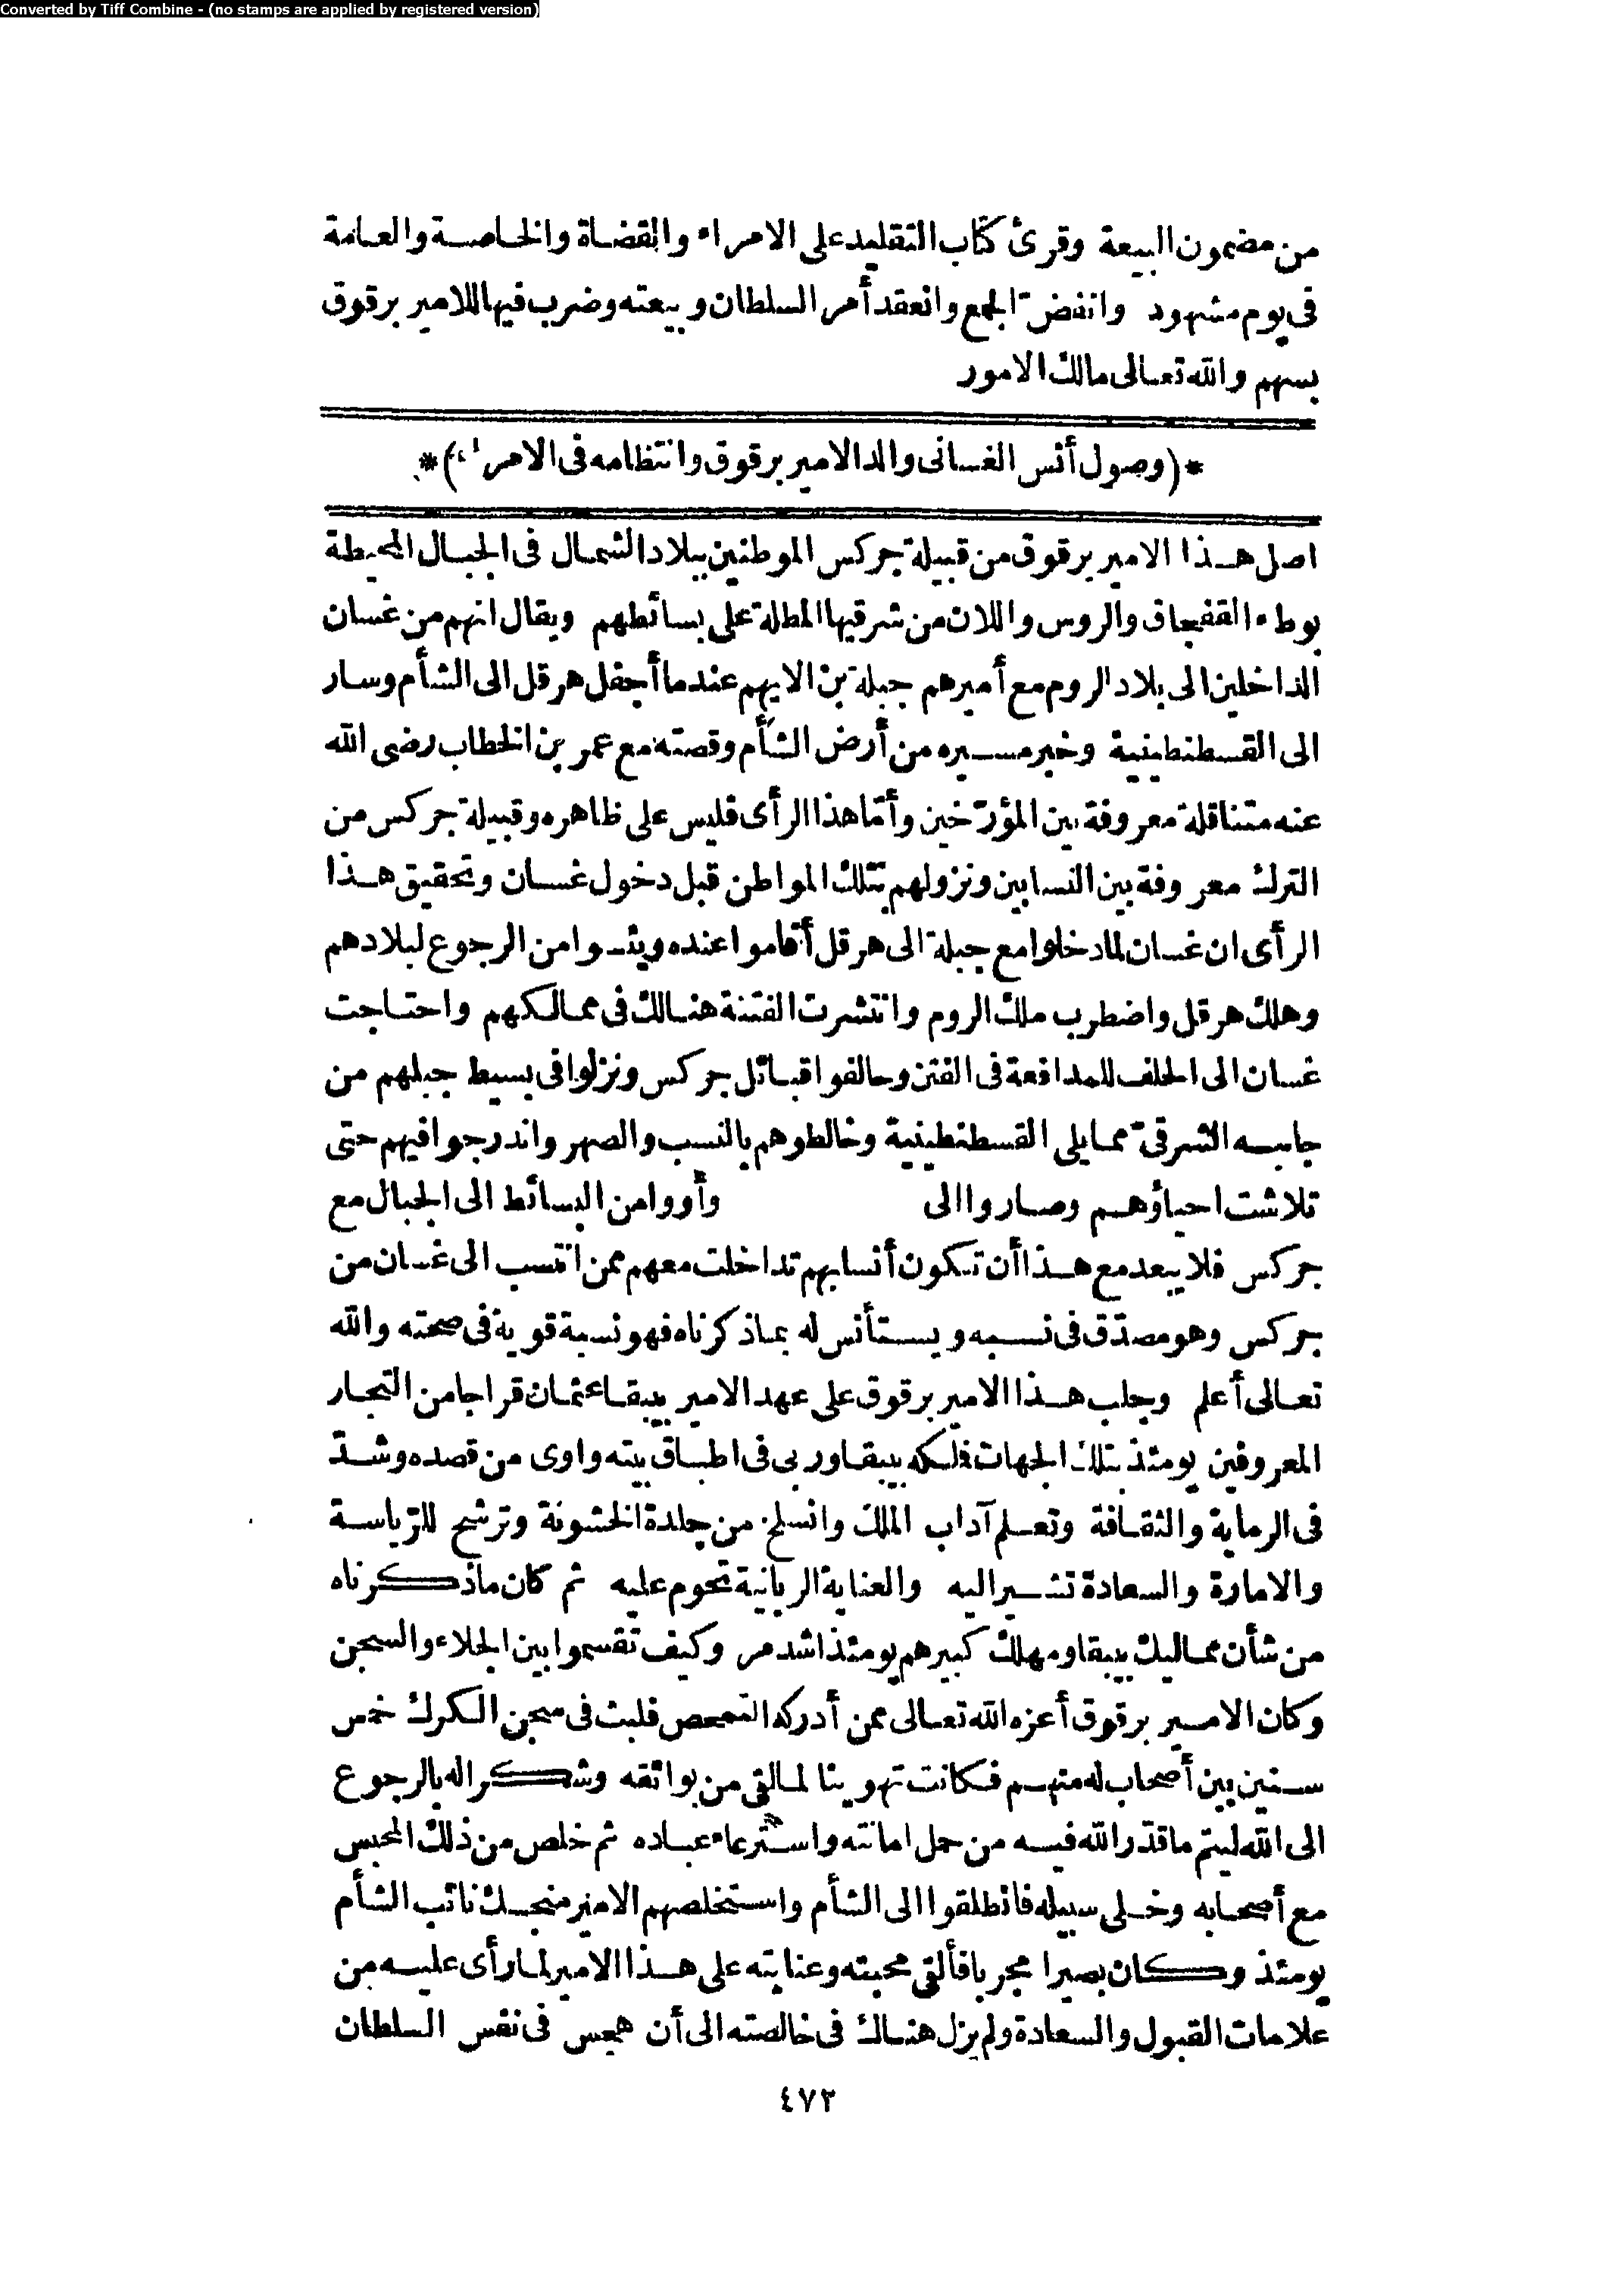 Converted by Tiff Combine - (no stamps are applied by registered version)
من مضمون البيعة وقرئ كتاب التقليد على الامراء والقضاة والخاصة والعامة
فى يوم مشهود وانفض الجمع وانعقد أمر السلطان وبيعته وضرب فيها للامير برقوق
بسهم والله تعالى مالك الامور
*(وصول أنس الغسانى والد الامير برقوق وانتظامه فى الامراء)*
اصل هذا الامير برقوق من قبيلة جركس الموطنين ببلاد الشمال فى الجبال المحيطة
بوطء القفجاق والروس واللان من شرقيها المطلة على بسائطهم ويقال انهم من غسان
الداخلين الى بلاد الروم مع أميرهم جبلة بن الايهم عندما أجفل هرقل الى الشأم وسار
الى القسطنطينية وخبر مسيره من أرض الشأم وقصته مع عمر بن الخطاب رضى الله
عنه متناقلة معروفة بين المؤرّخين وأمّا هذا الرأى فليس على ظاهره وقبيلة جركس من
الترك معروفة بين النسابين ونزولهم بتلك المواطن قبل دخول غسان وتحقيق هذا
الرأى ان غسان لما دخلوا مع جبلة الى هرقل أقاموا عنده ويئسوا من الرجوع لبلادهم
وهلك هرقل واضطرب ملك الروم وانتشرت الفتنة هنالك فى ممالكهم واحتاجت
غسان الى الحلف للمدافعة فى الفتن وحالفوا قبائل جركس ونزلوا فى بسيط جبلهم من
جانبه الشرقىّ مما يلى القسطنطينية وخالطوهم بالنسب والصهر واندرجوا فيهم حتى
تلاشت احياؤهم وصاروا الى وأووا من البسائط الى الجبال مع
جركس فلا يبعد مع هذا أن تكون أنسابهم تداخلت معهم ممن انتسب الى غسان من
جركس وهو مصدّق فى نسبه ويستأنس له بما ذكرناه فهو نسبة قوية فى صحته والله
تعالى أعلم وجلب هذا الامير برقوق على عهد الامير بيبقا عثمان قراجا من التجار
المعروفين يومئذ بتلك الجهات فملكه بيبقا وربى فى اطباق بيته واوى من قصده وشدّ
فى الرماية والثقافة وتعلم آداب الملك وانسلخ من جلدة الخشونة وترشح للرّياسة
والامارة والسعادة تشير اليه والعناية الربانية تحوم عليه ثم كان ما ذكرناه
من شأن مماليك بيبقا ومهلك كبيرهم يومئذ اشدمر وكيف تقسموا بين الجلاء والسجن
وكان الامير برقوق أعزه الله تعالى ممن أدركه التمحص فلبث فى سجن الكرك خمس
سنين بين أصحاب له منهم فكانت تهوينا لما لقى من بوائقه وشكرا له بالرجوع
الى الله ليتم ما قدّر الله فيه من حمل امانته واسترعاء عباده ثم خلص من ذلك المحبس
مع أصحابه وخلى سبيله فانطلقوا الى الشأم واستخلصهم الامير منجك نائب الشأم
يومئذ وكان بصيرا مجربا فألقى محبته وعنايته على هذا الامير لما رأى عليه من
علامات القبول والسعادة ولم يزل هناك فى خالصته الى أن هجس فى نفس السلطان
٤٧٣